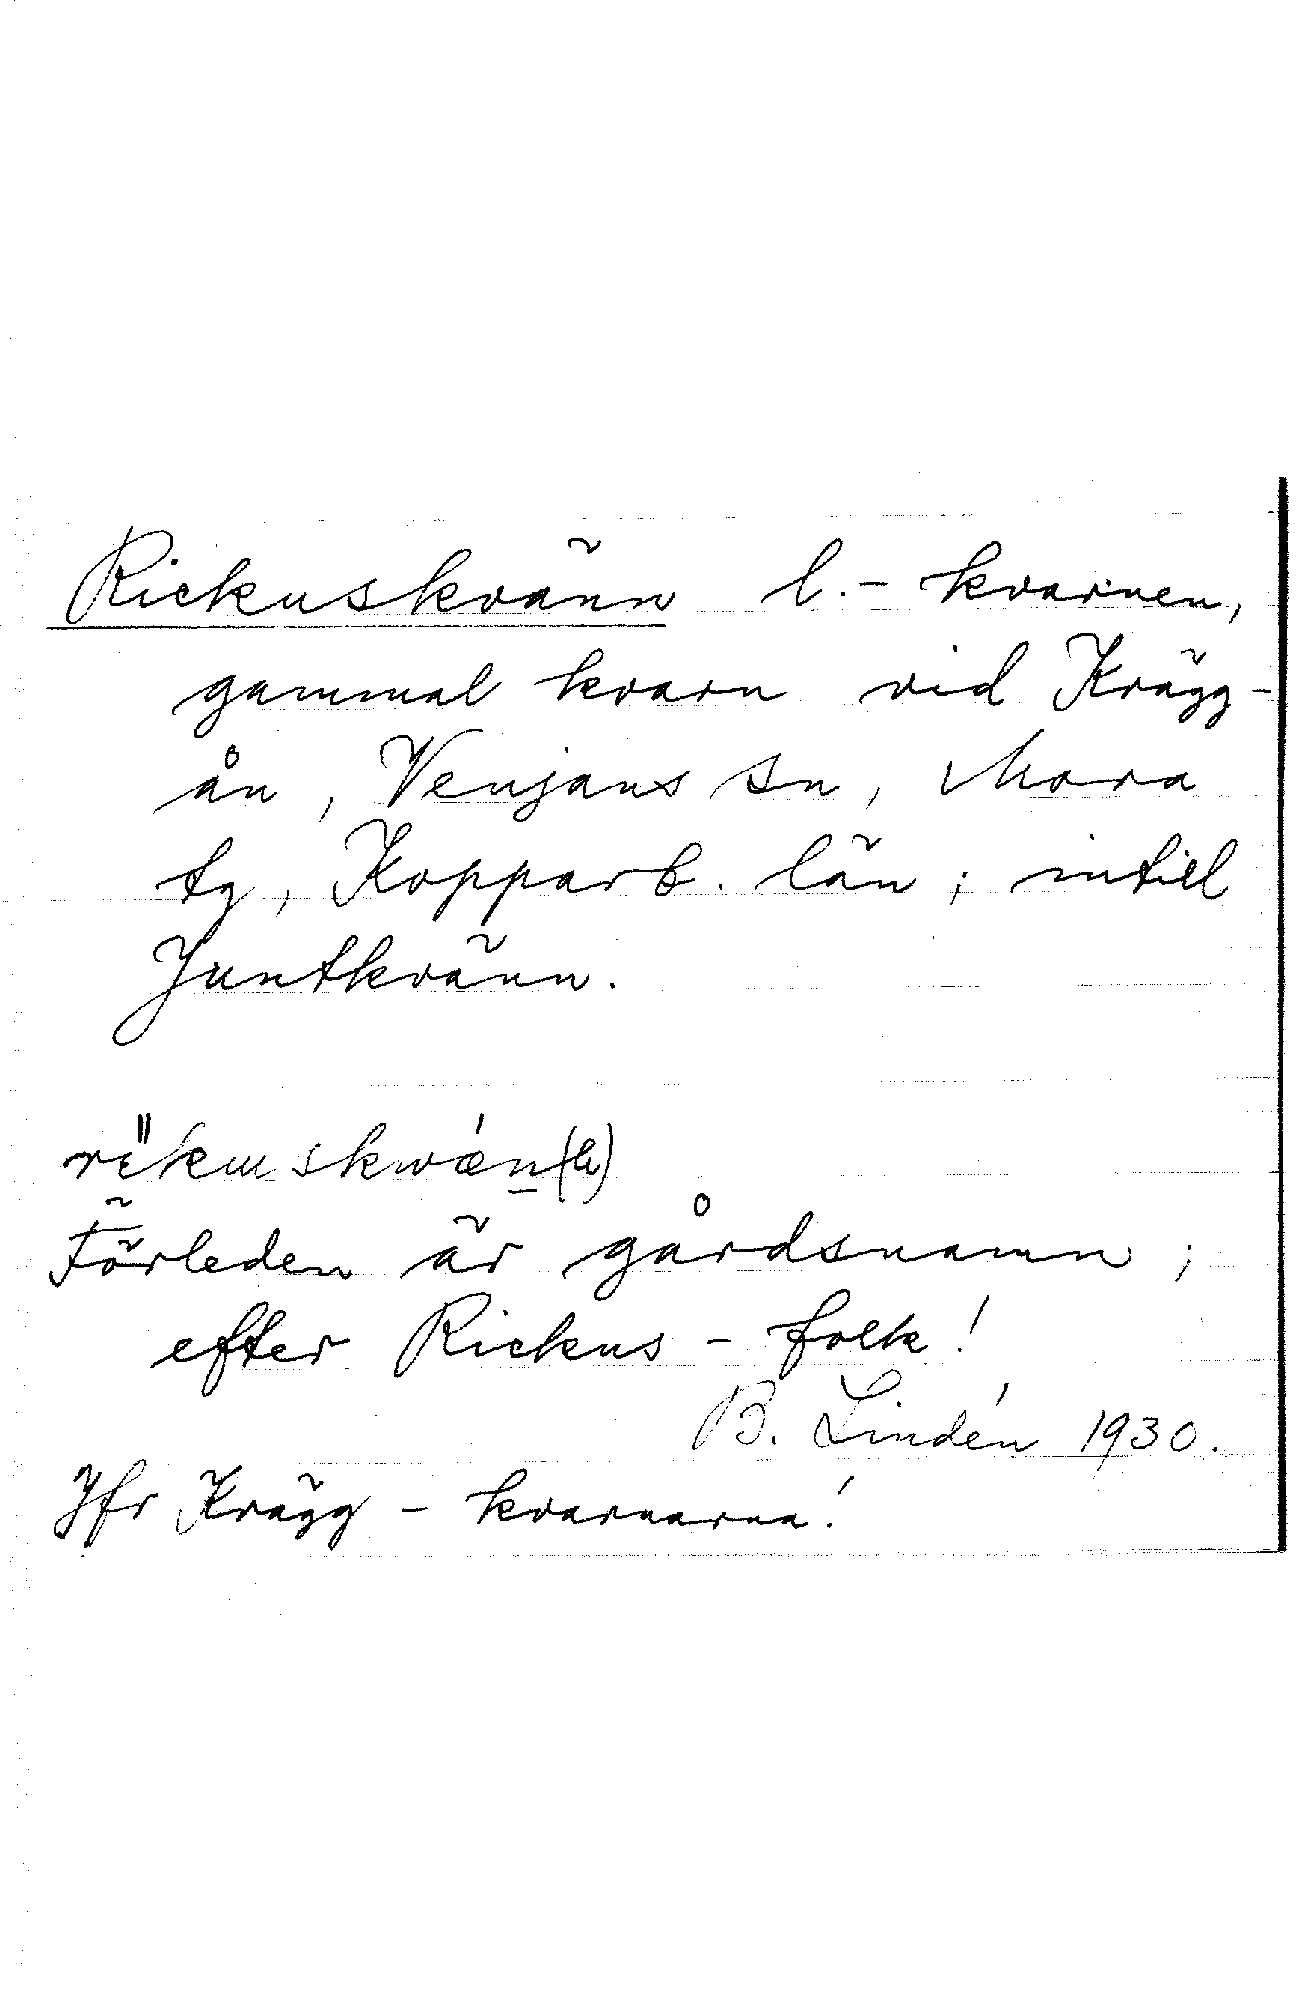 Rickuskvänn l. - kvarnen,
gammal kvarn vid Krägg-
ån, Venjans sn, Mora
tg, Kopparb. län; intill
Juntkvänn.
Förleden är gårdsnamn;
efter Rickus - folk!
B. Lindén 1930.
Jfr Krägg - kvarnarna!